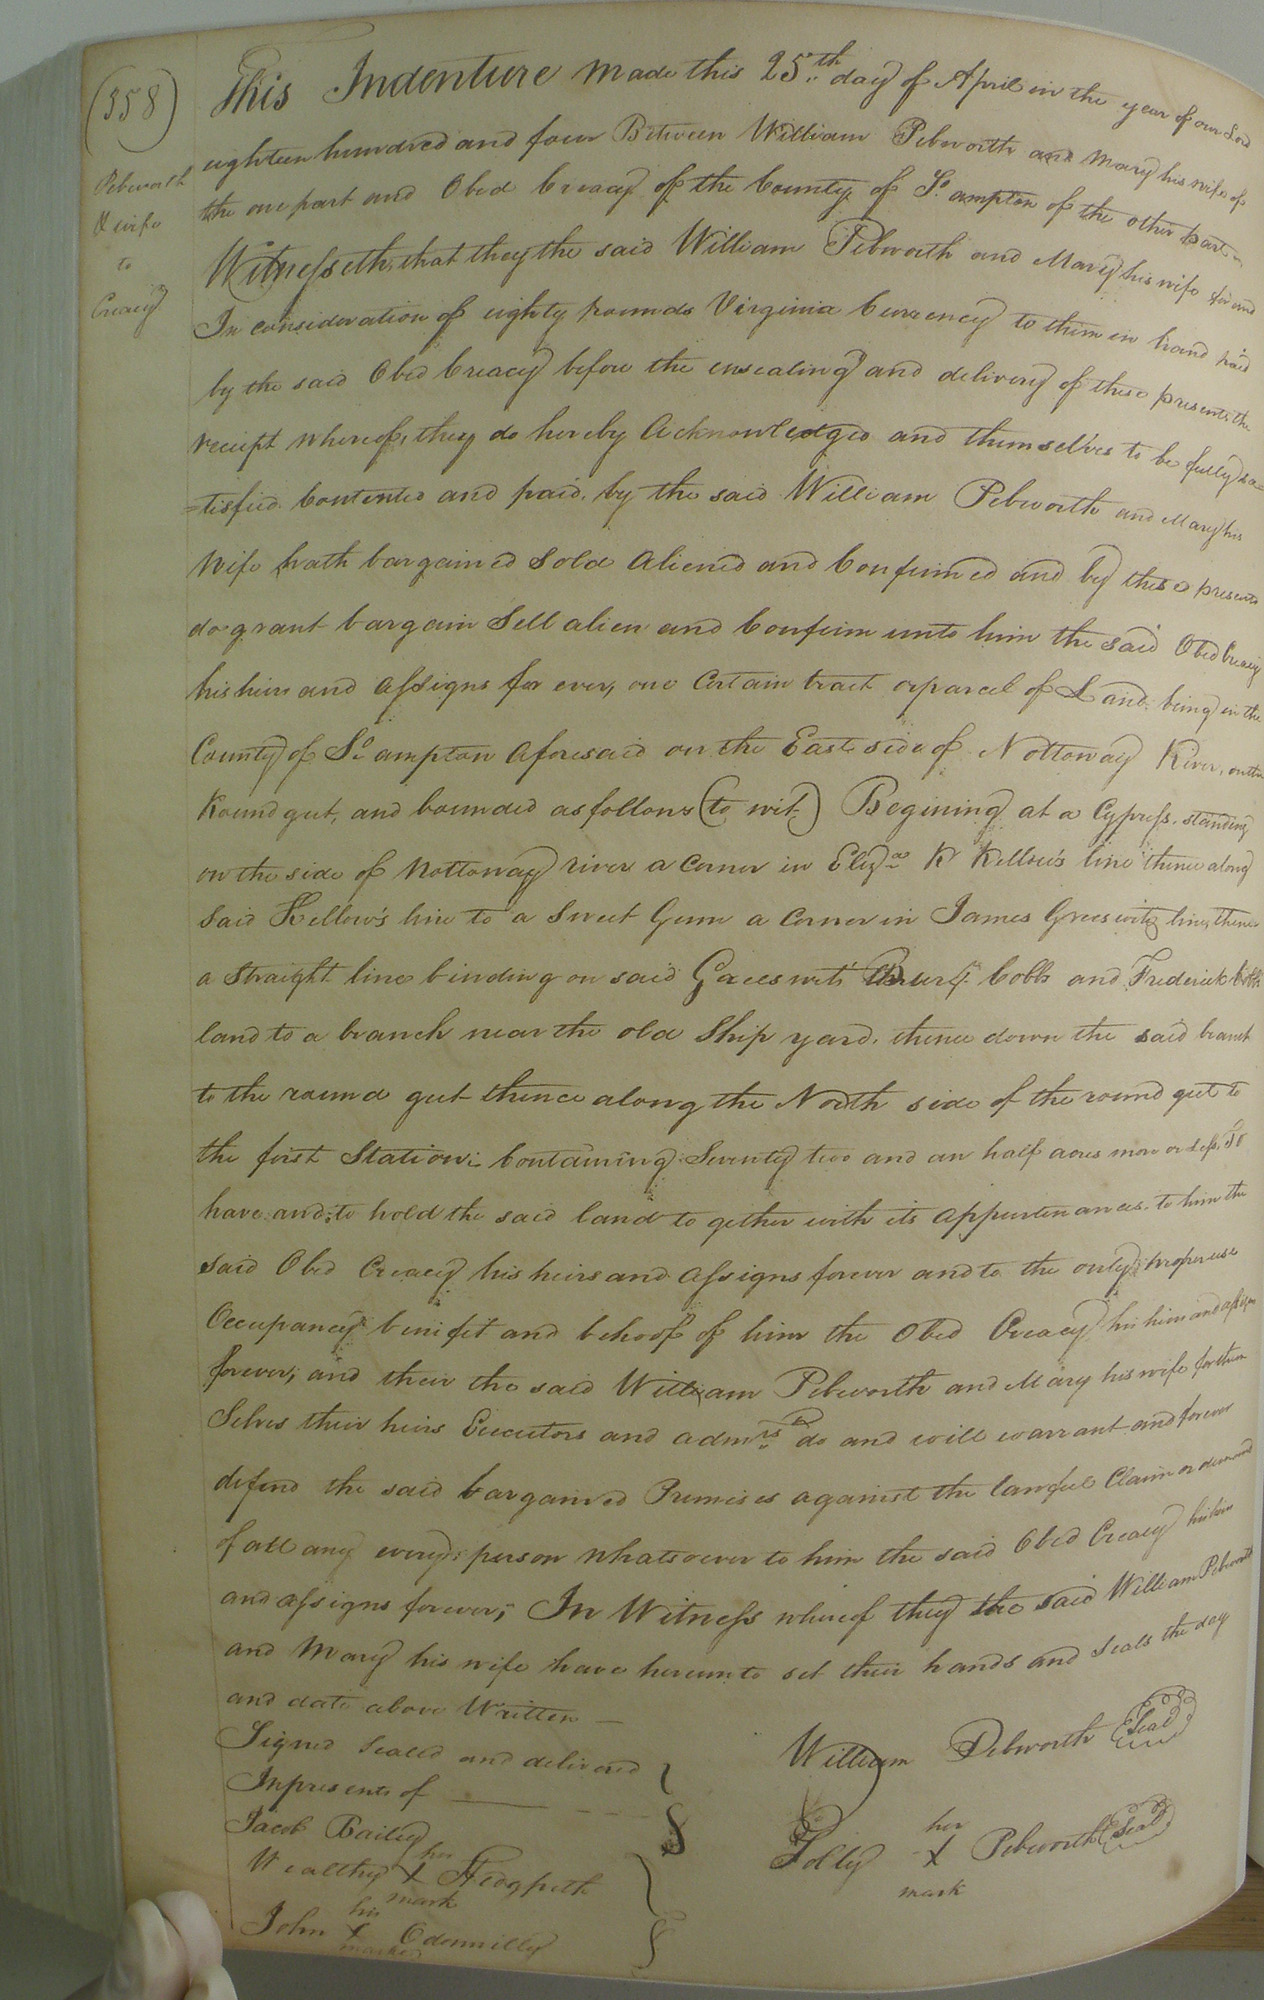 (358)
Pebworth
& wife
to
Creacy
This Indenture made this 25th day of April in the year of our Lord
eighteen hundred and four Between William Pebworth and Mary his wife of
the one part and Obed Creacy of the County of So. ampton of the other part
Witnesseth, that they the said William Pebworth and Mary his wife for and
In consideration of eighty pounds Virginia Currency to them in hand paid
by the said Obed Creacy before the ensealing and delivery of these presents, the
receipt whereof, they do hereby Acknowledges and themselves to be fully sa=
=tisfied Contented and paid, by the said William Pebworth and Mary his
Wife hath bargained Sold Aliened and Confirmed and by these presents
do grant bargain Sell alien and Confirm unto him the said Obed Creacy
his heirs and Assigns for ever, one Certain tract or parcel of Land, being in the
County of So. ampton Aforesaid on the East side of Nottoway River, on the
Round gut, and bounded as follows (to wit,) Begining at a Cypress, standing
on the side of Nottoway river a corner in Eliza. K Kellow's line thence along
said Kellow's line to a Sweet Gum a Corner in James Greeswitz line, thence
a straight line binding on said Greeswits' Cobbs and Frederick Cobbs
land to a branch near the old Ship yard, thence down the said branch
to the round gut thence along the North side of the round gut to
the first Station; Containing Seventy two and an half acres more or less, To
have and to hold the said land to gether with its appurtenances, to him the
said Obed Creacy his heirs and Assigns forever and to the only proper use
Occupancy benifit and behoof of him the Obed Creacy his heirs and assigns
forever, and their the said William Pebworth and Mary his wife for them
Selves their heirs Executors and admrs. do and will warrant and forever
defend the said bargained Premises against the lawful Claim or demand
of all any every person whatsoever to him the said Obed Creacy his heirs
and assigns forever; In Witness whereof they the said William Pebworth
and Mary his wife have hereunto set their hands and Seals the day
and date above Written
Signed Sealed and delivered
In presents of
Jacob Bailey
Wealthy her X mark Hedgpeth
John his X mark Odonnilly
William Pebworth (Seal)
Polly her X mark Pebworth (Seal)